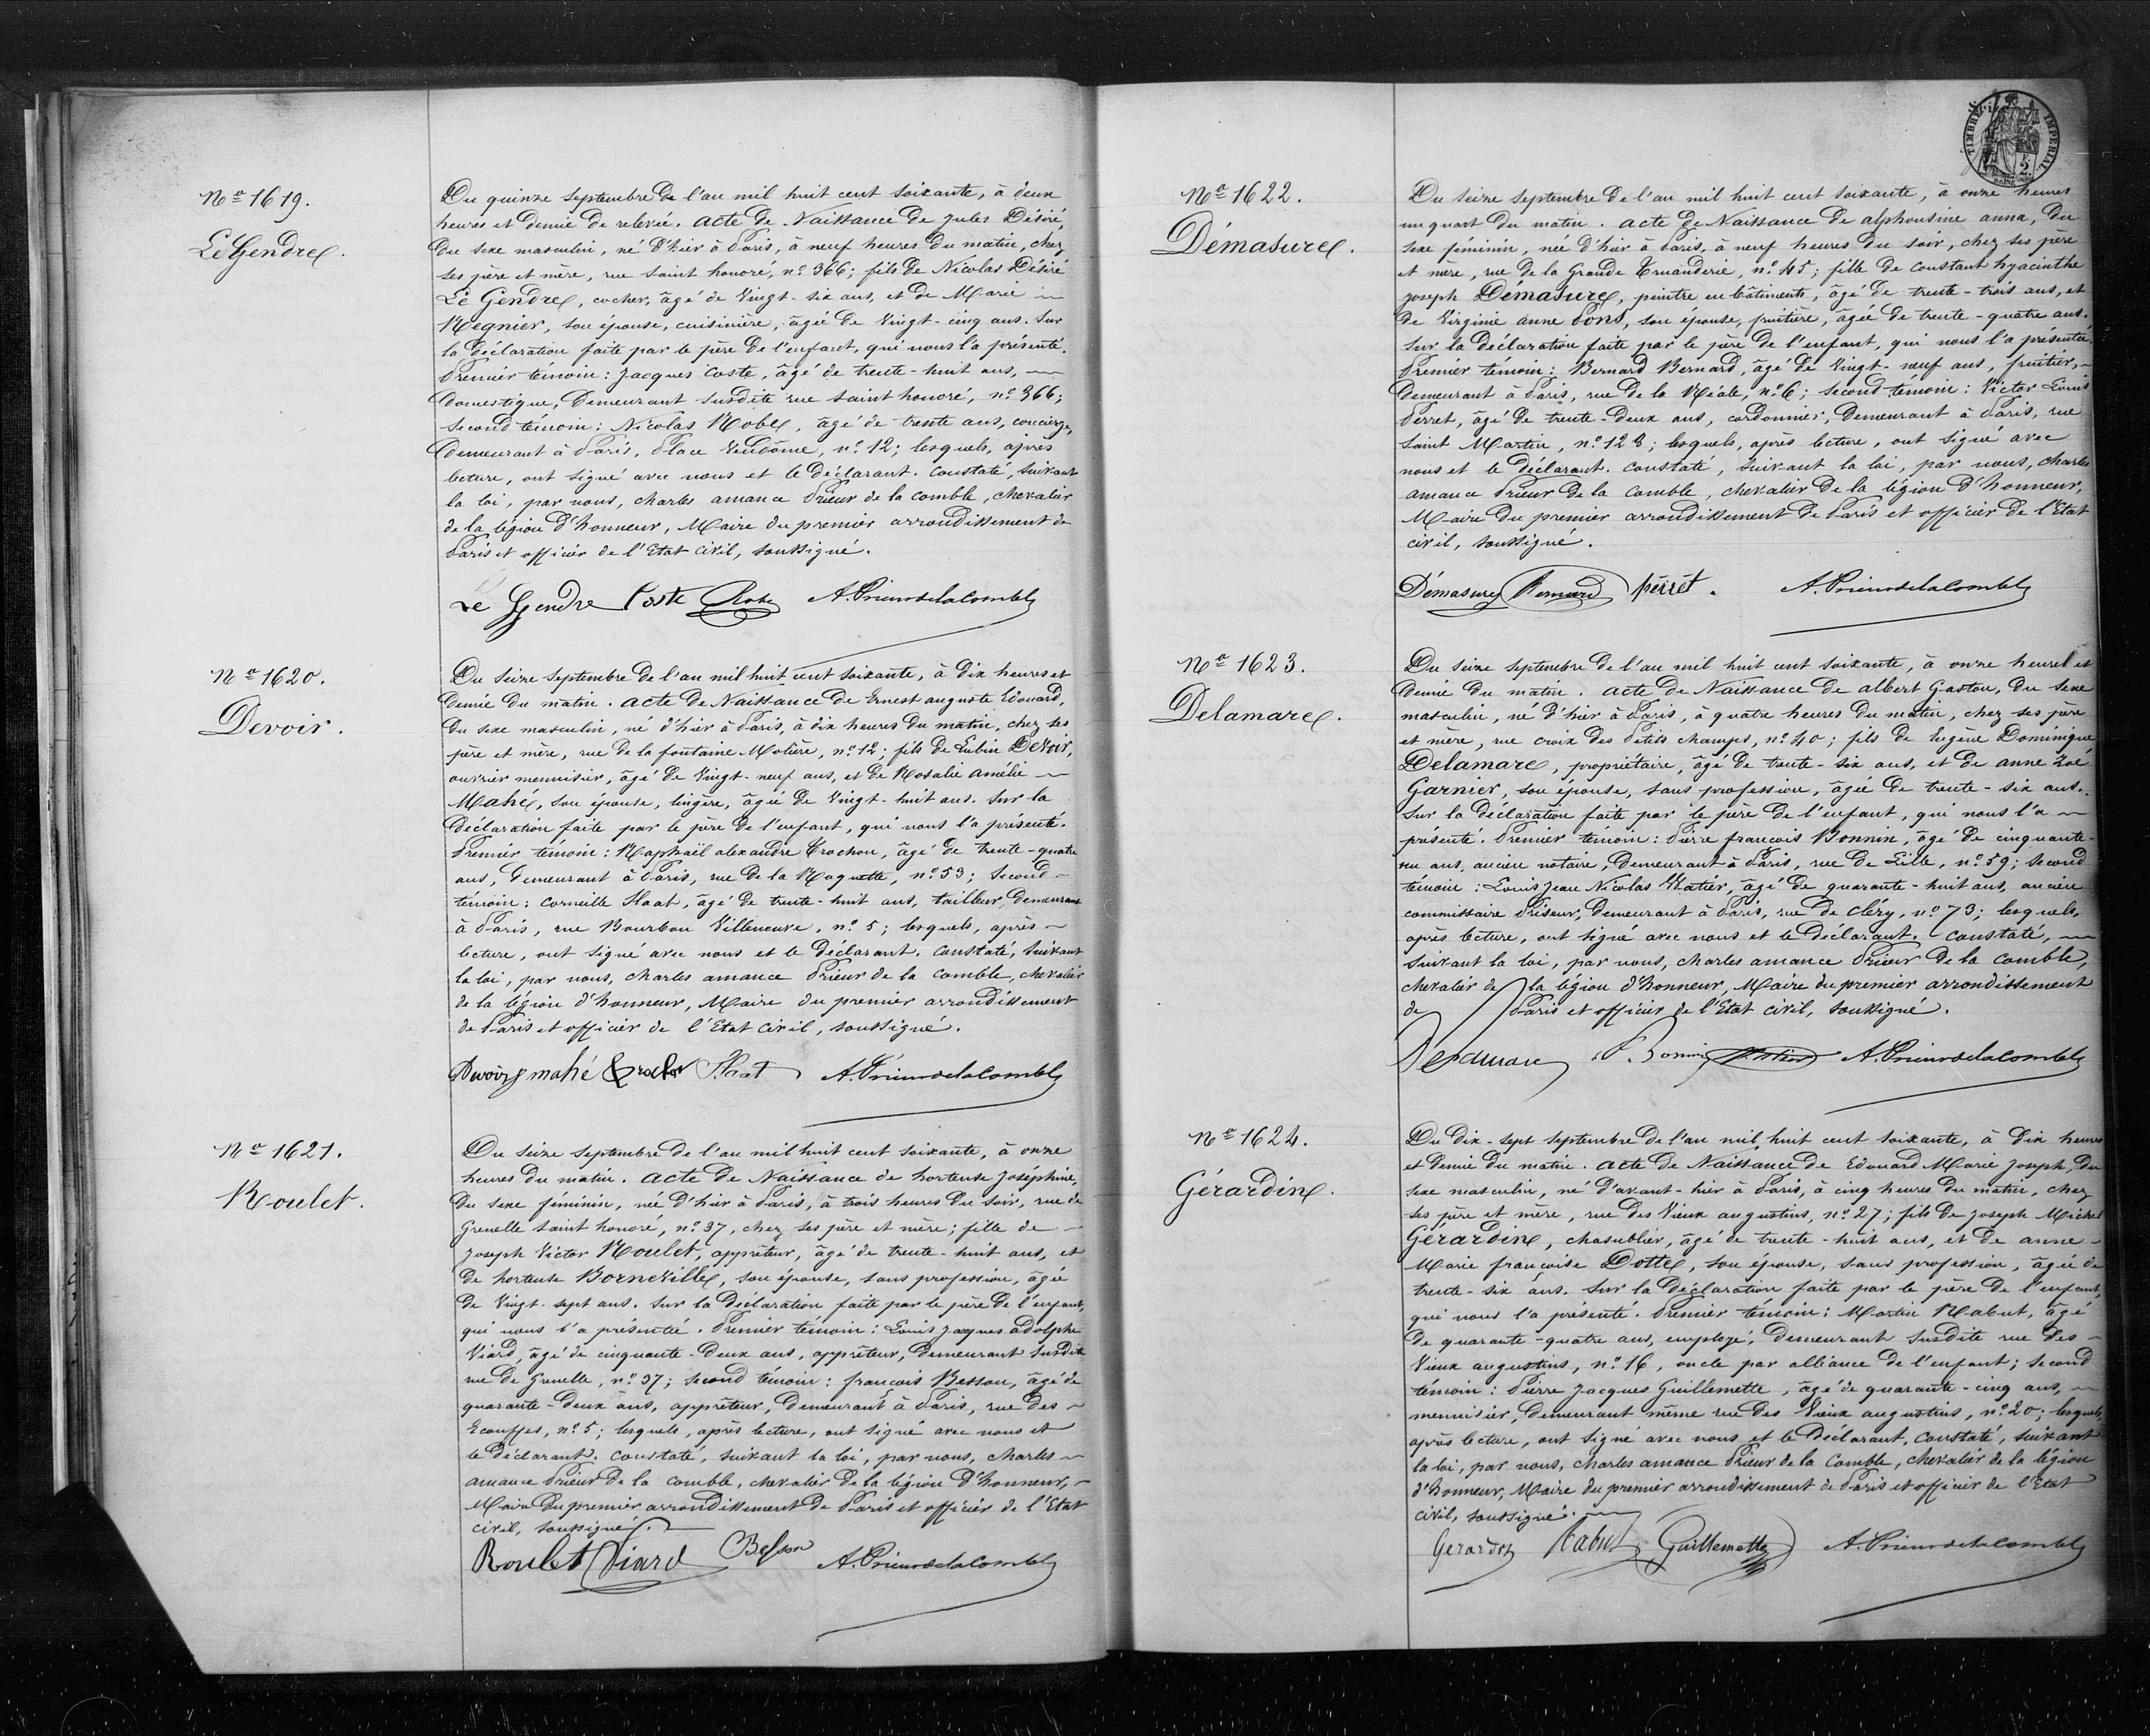 No 1619.
Le Gendre.
Du quinze septembre de l'an mil huit cent soixante, à deux
heures et demie de relevée. acte de Naissance de Jules Désiré,
du sexe masculin, né d'hier à Paris, à neuf heures du matin, chez
ses père et mère, rue saint honoré, no 366; fils de Nicolas Désiré
Le Gendre, cocher, âgé de vingt-six ans, et de Marie
Regnier, son épouse, cuisinière, âgée de vingt-cinq ans. Sur
la déclaration faite par le père de l'enfant, qui nous l'a présenté.
Premier témoin: Jacques Coste, âgé de trente-huit ans,
domestique, demeurant susdite rue saint honoré, no 366;
second témoin: Nicolas Robe, âgé de trente ans, concierge,
demeurant à Paris, Place Vendôme, no 12; lesquels, après
lecture, ont signé avec nous et le déclarant. Constaté, suivant
la loi, par nous, charles amance Prieur de la comble, chevalier
de la légion d'honneur, Maire du premier arrondissement de
Paris et officier de l'Etat civil, soussigné.
Le Gendre Coste Robe A. Prieurdelacomble
No 1620.
Devoir.
Du seize septembre de l'an mil huit cent soixante, à dix heures et
demie du matin. acte de Naissance de Ernest auguste Edouard,
du sexe masculin, né d'hier à Paris, à dix heures du matin, chez ses
père et mère, rue de la fontaine Molière, no 12; fils de Lubin Devoir,
ouvrier menuisier, âgé de vingt-neuf ans, et de Rosalie amélie
Mahé, son épouse, lingère, âgée de vingt-huit ans. Sur la
déclaration faite par le père de l'enfant, qui nous l'a présenté.
Premier témoin: Raphaël alexandre Crochon, âgé de trente-quatre
ans, demeurant à Paris, rue de la Roquette, no 53; Second
témoin: Corneille Slaat, âgé de trente-huit ans, tailleur, demeurant
à Paris, rue Bourbon Villeneuve, no 5; lesquels, après
lecture, ont signé avec nous et le déclarant. Constaté, suivant
la loi, par nous, charles amance Prieur de la comble, chevalier
de la légion d'honneur, Maire du premier arrondissement
de Paris et officier de l'Etat civil, soussigné.
Devoir mahé Slaat A. Prieurdelacomble
No 1621.
Roulet.
Du seize septembre de l'an mil huit cent soixante, à onze
heures du matin. acte de Naissance de hortense Joséphine,
du sexe féminin, née d'hier à Paris, à trois heures du soir, rue de
Grenelle saint honoré, no 37, chez ses père et mère; fille de
Joseph Victor Roulet, apprêteur, âgé de trente-huit ans, et
de hortense Borneville, son épouse, sans profession, âgée
de vingt-sept ans. Sur la déclaration faite par le père de l'enfant,
qui nous l'a présentée. Premier témoin: Louis Jacques adolphe
Viard, âgé de cinquante-deux ans, apprêteur, demeurant susdite
rue de Grenelle, no 37; second témoin: françois Besson, âgé de
quarante-deux ans, apprêteur, demeurant à Paris, rue des
Ecouffes, no 5; lesquels, après lecture, ont signé avec nous et
le déclarant. Constaté, suivant la loi, par nous, charles
amance Prieur de la comble, chevalier de la légion d'honneur,
Maire du premier arrondissement de Paris et officier de l'Etat
civil, soussigné.
Roulet Viard Besson A. Prieurdelacomble
TIMBRE IMPERIAL
2
No 1622.
Démasure.
Du seize septembre de l'an mil huit cent soixante, à onze heures
un quart du matin. acte de Naissance de alphonsine anna, du
sexe féminin, née d'hier à Paris, à neuf heures du soir, chez ses père
et mère, rue de la Grande Truanderie, no 45; fille de constant hyacinthe
joseph Démasure, peintre en bâtiments, âgé de trente-trois ans, et
de Virginie anne Pons, son épouse, fruitière, âgée de trente-quatre ans.
Sur la déclaration faite par le père de l'enfant, qui nous l'a présentée.
Premier témoin: Bernard Bernard, âgé de vingt-neuf ans, fruitier,
demeurant à Paris, rue de la Réale, no 6; second témoin: Victor Louis
Perret, âgé de trente-deux ans, cordonnier, demeurant à Paris, rue
saint Martin, no 123; lesquels, après lecture, ont signé avec
nous et le déclarant. Constaté, suivant la loi, par nous, charles
amance Prieur de la comble, chevalier de la légion d'honneur,
Maire du premier arrondissement de Paris et officier de l'Etat
civil, soussigné.
Démasure Bernard perret. A. Prieurdelacomble
No 1623.
Delamare.
Du seize septembre de l'an mil huit cent soixante, à onze heures et
demie du matin. acte de Naissance de albert Gaston, du sexe
masculin, né d'hier à Paris, à quatre heures du matin, chez ses père
et mère, rue croix des Petits champs, no 40; fils de Eugène Dominique
Delamare, propriétaire, âgé de trente-six ans, et de anne Zoé
Garnier, son épouse, sans profession, âgée de trente-six ans.
Sur la déclaration faite par le père de l'enfant, qui nous l'a
présenté. Premier témoin: Pierre françois Bonnin, âgé de cinquante-
un ans, ancien notaire, demeurant à Paris, rue de Lille, no 59; second
témoin: Louis Jean Nicolas Vatier, âgé de quarante-huit ans, ancien
commissaire Priseur, demeurant à Paris, rue de Cléry, no 73; lesquels,
après lecture, ont signé avec nous et le déclarant. Constaté,
suivant la loi, par nous, charles amance Prieur de la comble,
chevalier de la légion d'honneur, Maire du premier arrondissement
de Paris et officier de l'Etat civil, soussigné.
Delamare Bonnin A. Prieurdelacomble
No 1624.
Gérardin.
Du dix-sept septembre de l'an mil huit cent soixante, à dix heures
et demie du matin. acte de Naissance de Edouard Marie Joseph, du
sexe masculin, né d'avant-hier à Paris, à cinq heures du matin, chez
ses père et mère, rue des Vieux augustins, no 27; fils de Joseph Michel
Gérardin, chasublier, âgé de trente-huit ans, et de anne
Marie françoise Dotte, son épouse, sans profession, âgée de
trente-six ans. Sur la déclaration faite par le père de l'enfant,
qui nous l'a présenté. Premier témoin: Martin Rabut, âgé
de quarante-quatre ans, employé, demeurant susdite rue des
Vieux augustins, no 16, oncle par alliance de l'enfant; second
témoin: Pierre Jacques Guillemette, âgé de quarante-cinq ans,
menuisier, demeurant même rue des Vieux augustins, no 20; lesquels,
après lecture, ont signé avec nous et le déclarant. Constaté, suivant
la loi, par nous, charles amance Prieur de la Comble, chevalier de la légion
d'honneur, Maire du premier arrondissement de Paris et officier de l'Etat
civil, soussigné.
Gerardin Rabut Guillemette A. Prieurdelacomble